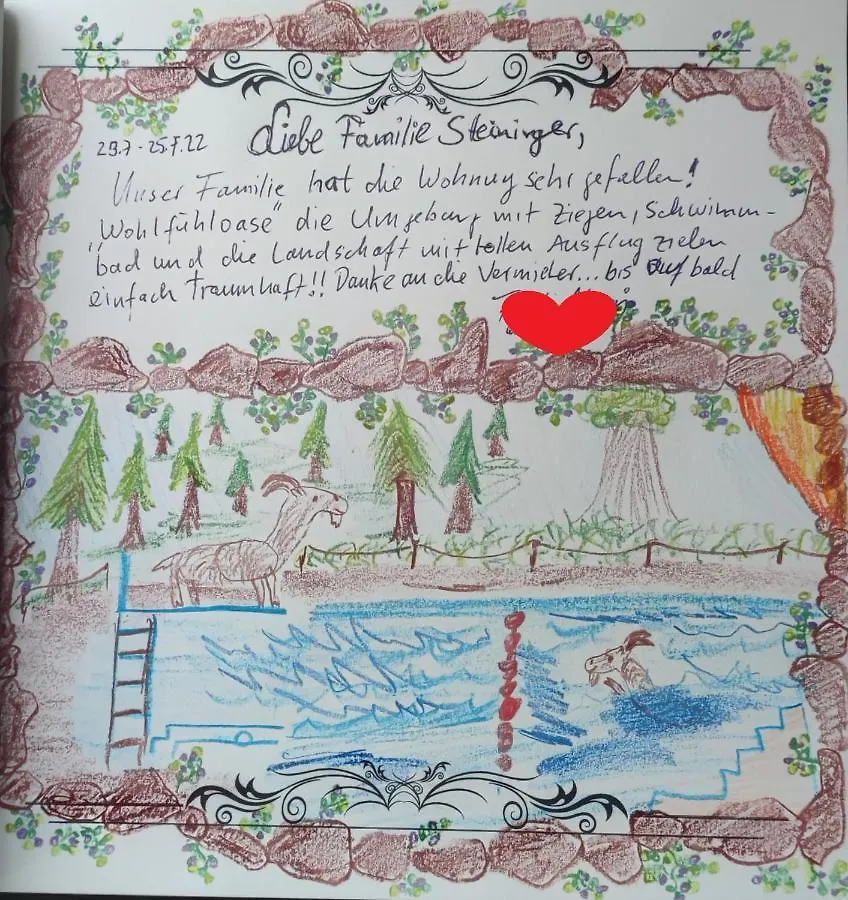 29.7 - 25.7.22 Liebe Familie Steininger,
Unser Familie hat die Wohnung sehr gefallen!
"Wohlfühloase" die Umgebung mit Ziegen, Schwimm-
bad und die Landschaft mit tollen Ausflug zielen
einfach traumhaft!! Danke an die Vermieter... bis auf bald